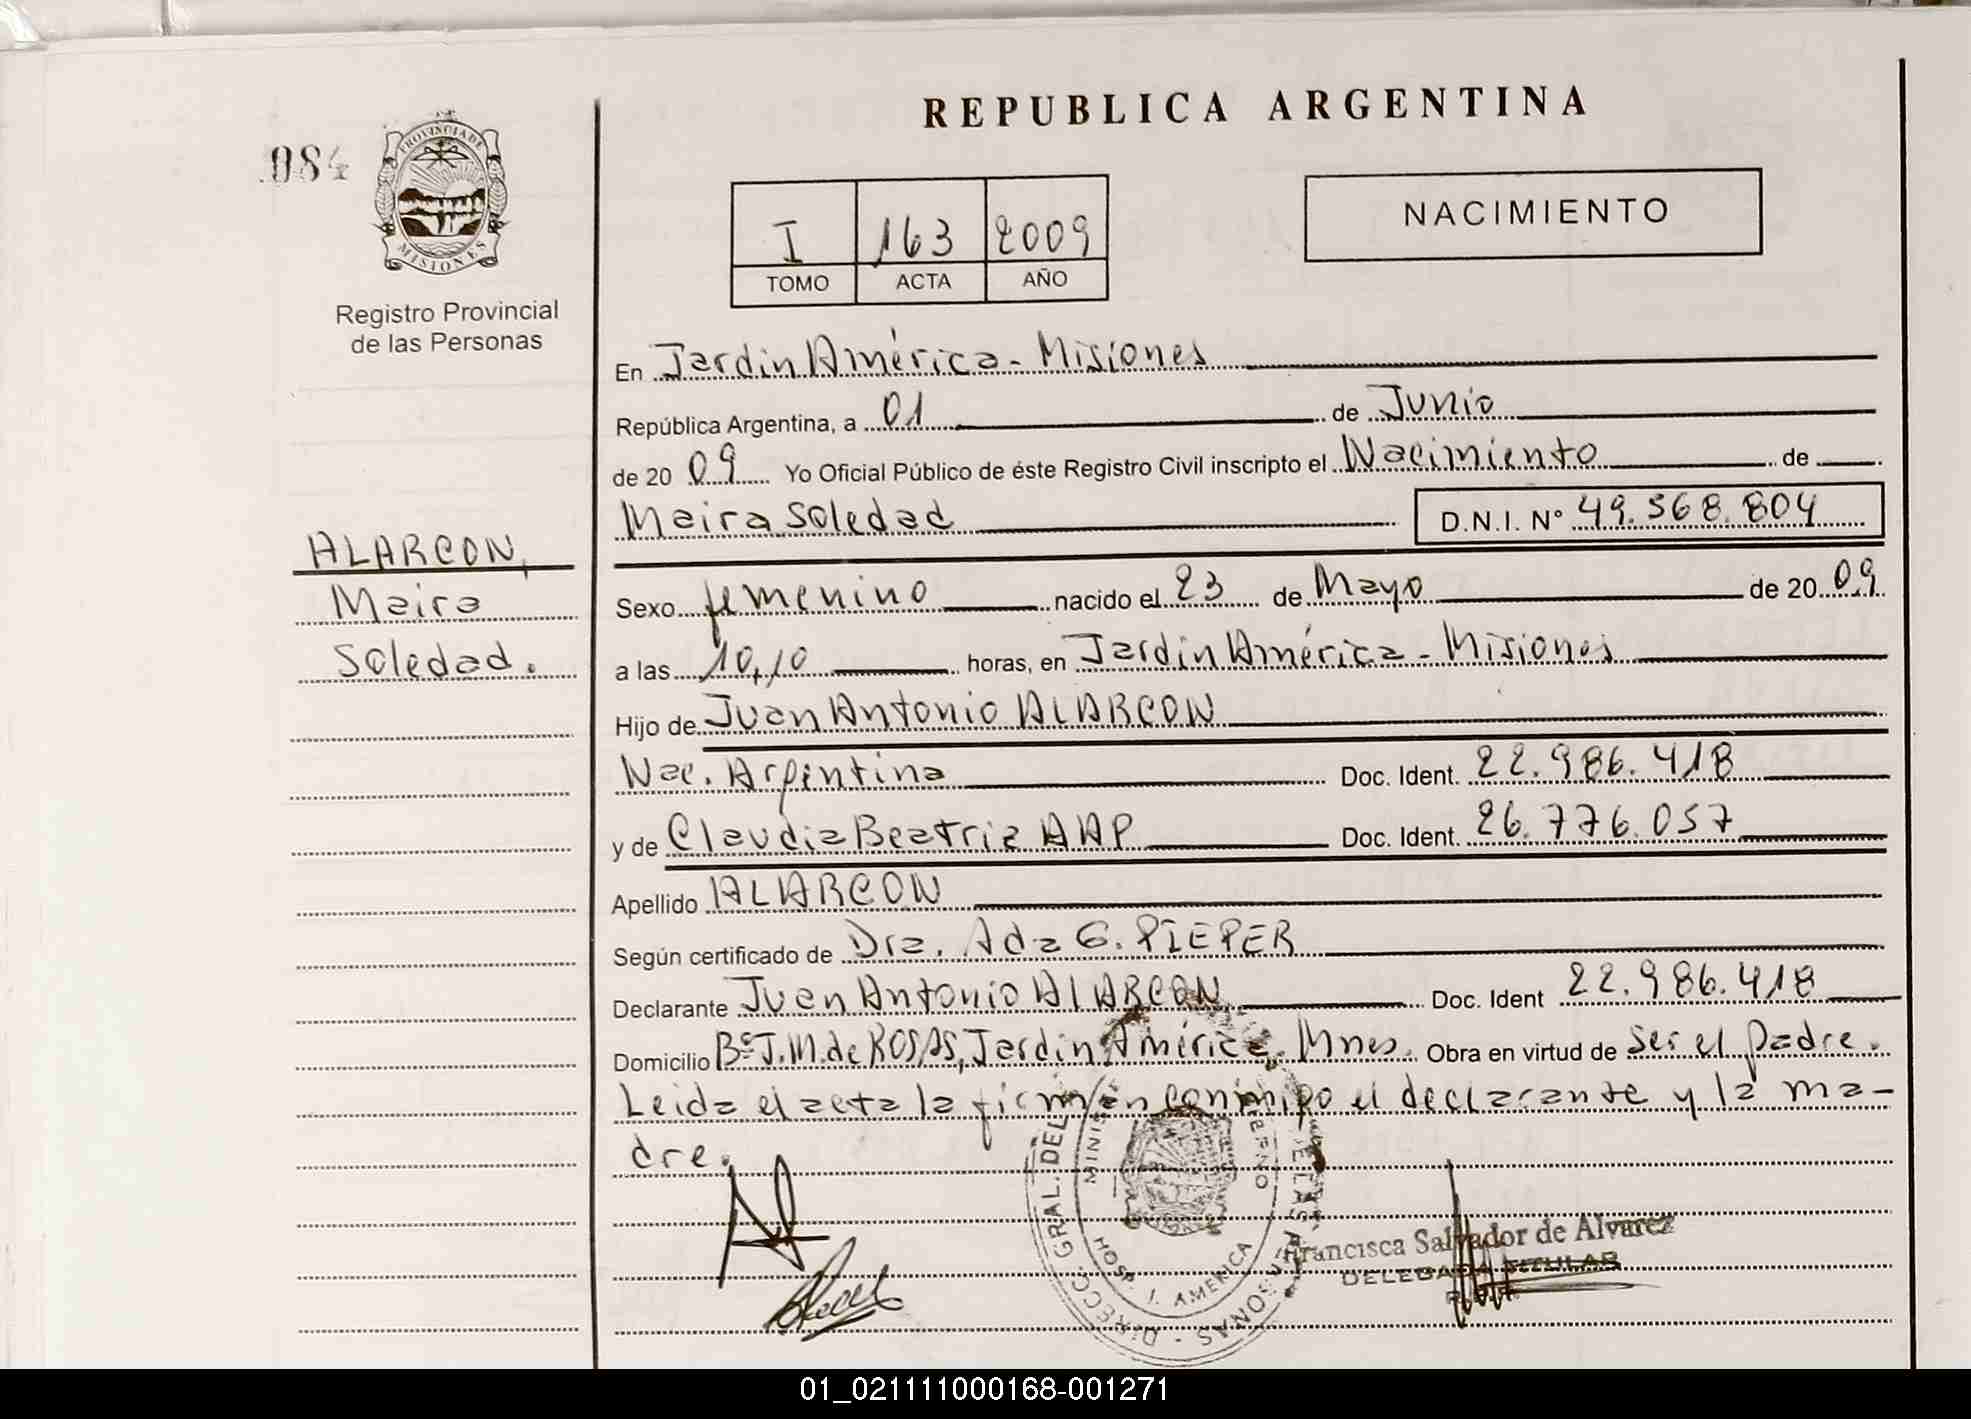 REPUBLICA ARGENTINA
084
PROVINCIA DE
MISIONES
Registro Provincial
de las Personas
I 163 2009
TOMO ACTA AÑO
NACIMIENTO
ALARCON,
Maira
Soledad.
En Jardin América - Misiones
República Argentina, a 01 de Junio
de 20 09 Yo Oficial Público de éste Registro Civil inscripto el Nacimiento de
Maira Soledad D.N.I. Nº 49.368.804
Sexo femenino nacido el 23 de Mayo de 20 09
a las 10,10 horas, en Jardin América - Misiones
Hijo de Juan Antonio ALARCON
Nac. Argentina Doc. Ident. 22.986.418
y de Claudia Beatriz Doc. Ident. 26.776.057
Apellido ALARCON
Según certificado de Dra. Ada G. PIEPER
Declarante Juan Antonio ALARCON Doc. Ident 22.986.418
Domicilio Bº J.M. de ROSAS, Jardin América. Mnes. Obra en virtud de Ser el padre.
Leida el acta la firman conmigo el declarante y la ma-
dre.
DIRECC. GRAL. DEL
HOSP. J. AMERICA
Francisca Salvador de Alvarez
DELEGADA TITULAR
01_021111000168-001271